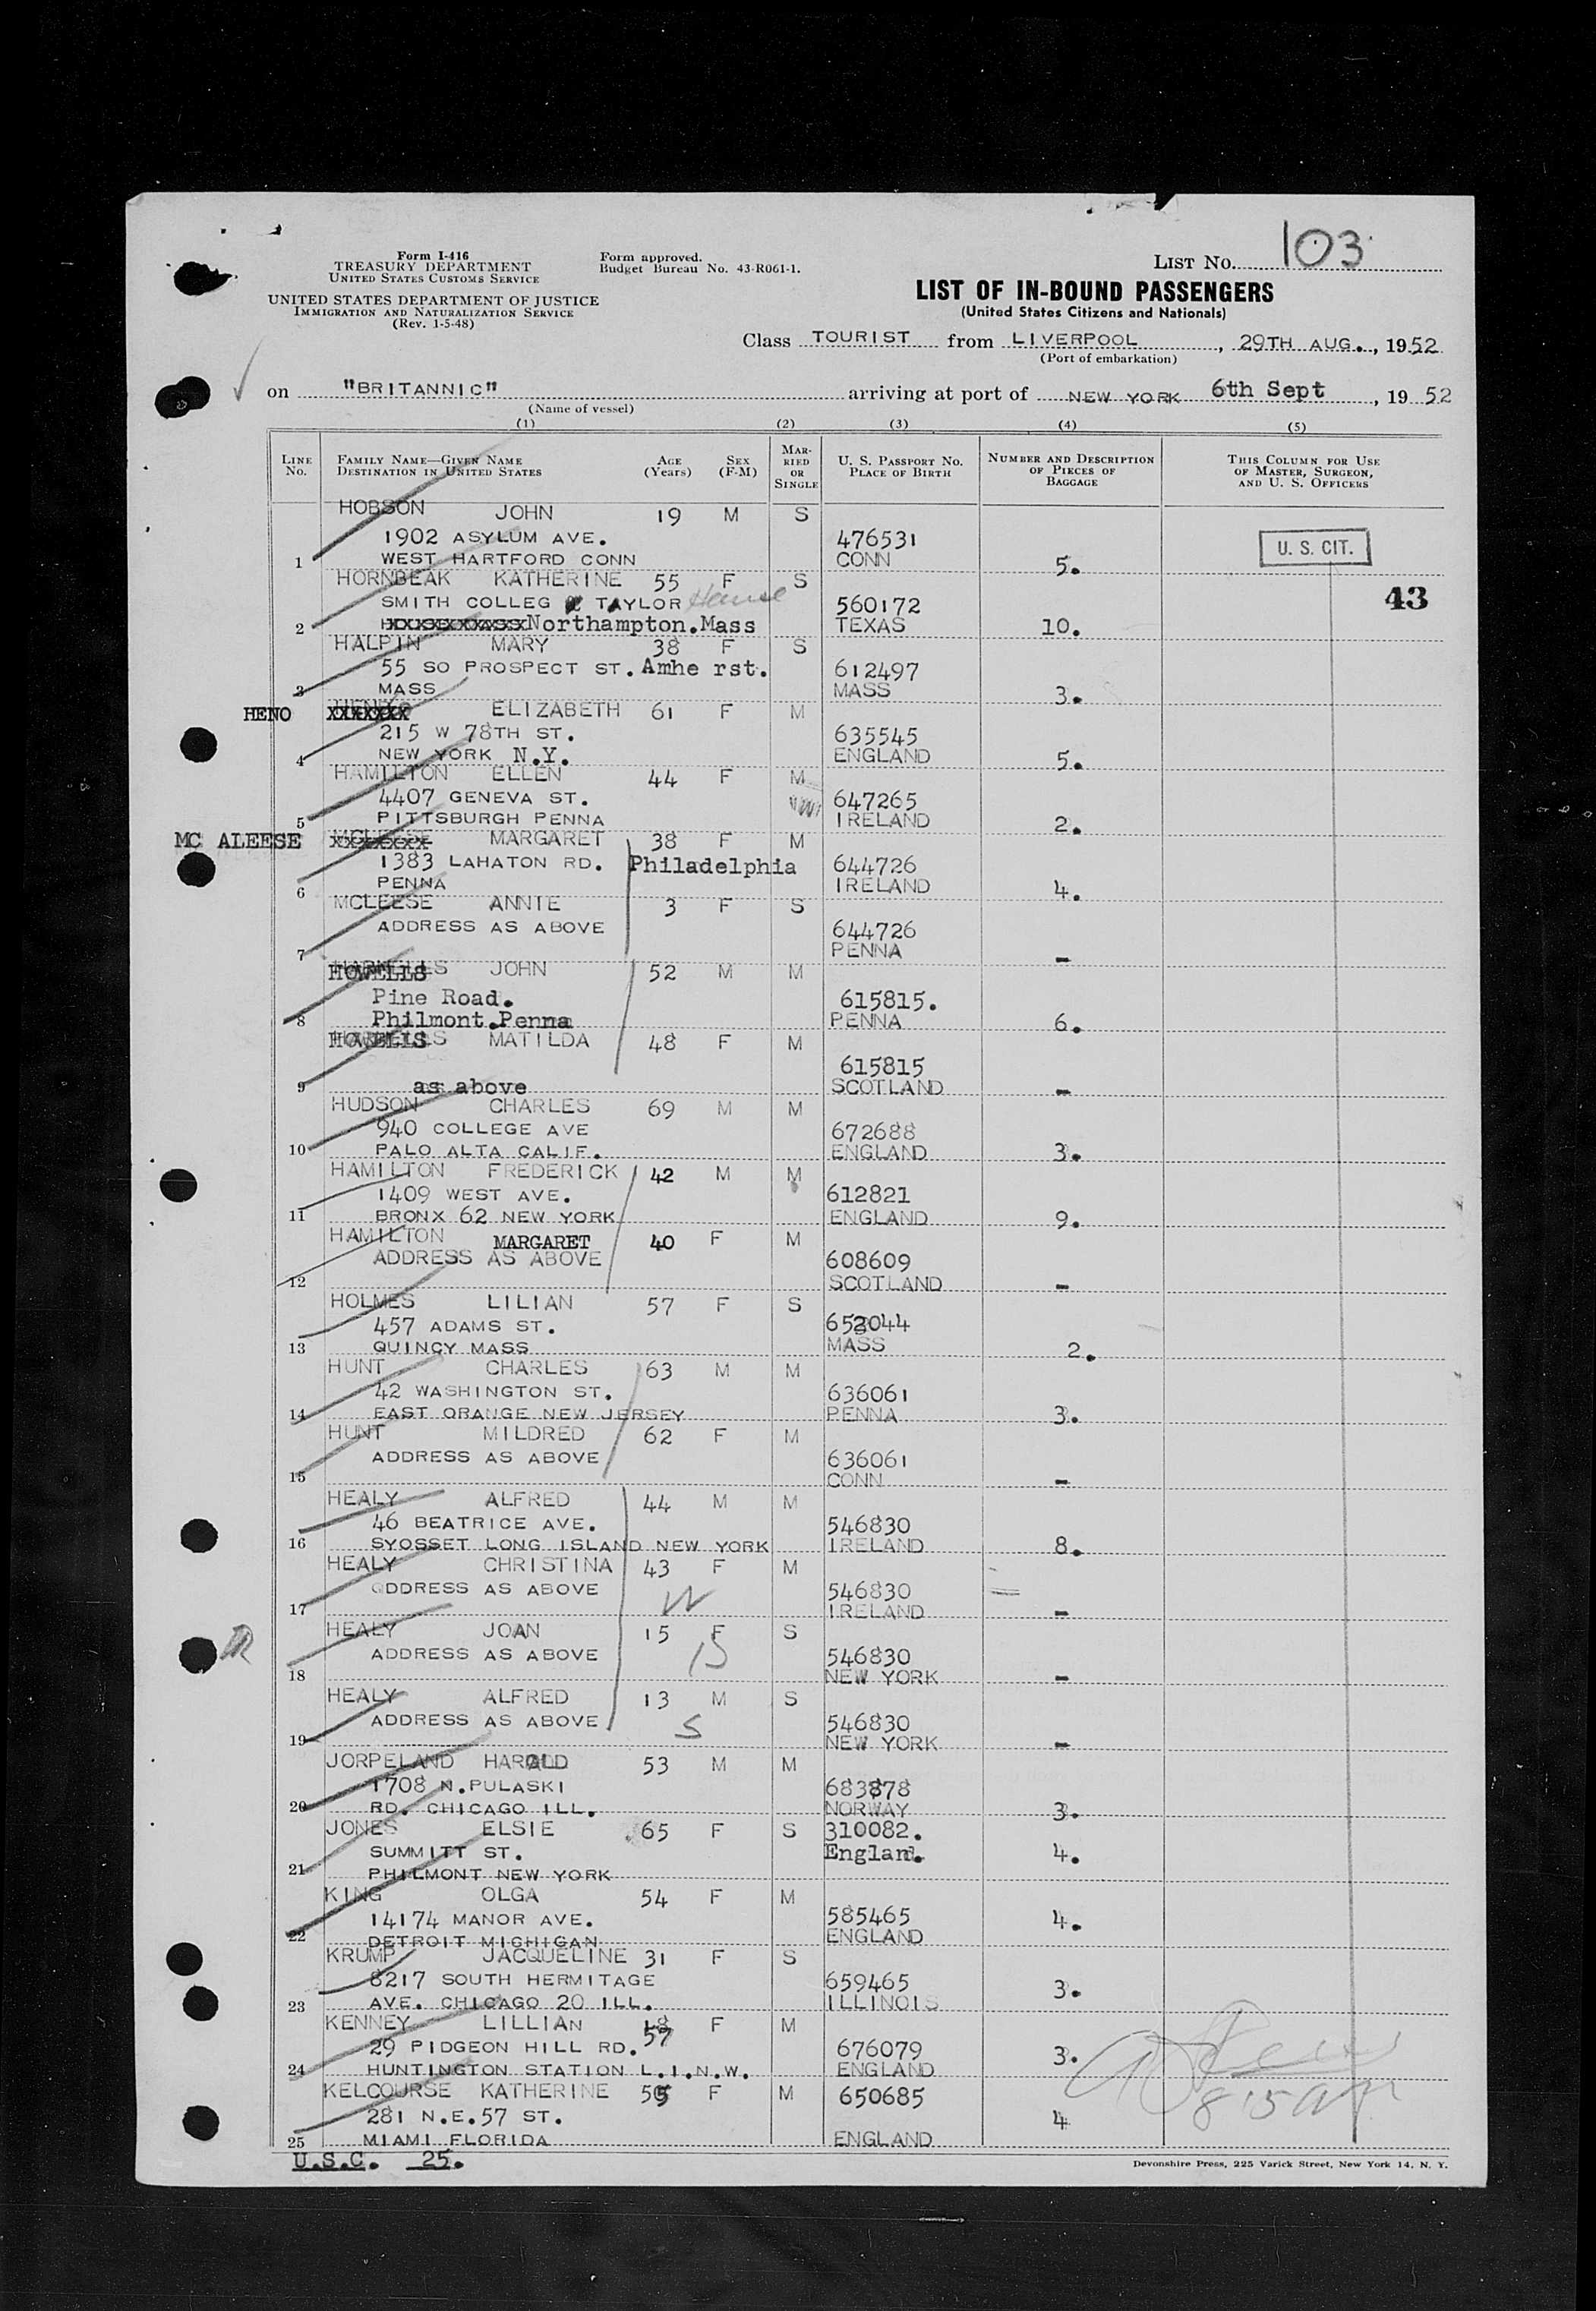 103
Form I-416
TREASURY DEPARTMENT
UNITED STATES CUSTOMS SERVICE
UNITED STATES DEPARTMENT OF JUSTICE
IMMIGRATION AND NATURALIZATION SERVICE
(Rev. 1-5-48)
Form approved.
Budget Bureau No. 43-R061-1.
LIST NO.
LIST OF IN-BOUND PASSENGERS
(United States Citizens and Nationals)
Class TOURIST from LIVERPOOL, 29TH AUG., 1952
(Port of embarkation)
on "BRITANNIC" arriving at port of NEW YORK 6th Sept, 1952
(Name of vessel)
(1) (2) (3) (4) (5)
LINE NO. FAMILY NAME—GIVEN NAME DESTINATION IN UNITED STATES AGE (Years) SEX (F-M) MARRIED OR SINGLE U. S. PASSPORT NO. PLACE OF BIRTH NUMBER AND DESCRIPTION OF PIECES OF BAGGAGE THIS COLUMN FOR USE OF MASTER, SURGEON, AND U. S. OFFICERS
HOBSON JOHN 19 M S
1902 ASYLUM AVE. 476531 U. S. CIT.
1 WEST HARTFORD CONN CONN 5.
HORNBEAK KATHERINE 55 F S
SMITH COLLEG TAYLOR House 560172 43
2 Northampton.Mass TEXAS 10.
HALPIN MARY 38 F S
55 SO PROSPECT ST. Amhe rst. 612497
3 MASS MASS 3.
HENO ELIZABETH 61 F M
215 W 78TH ST. 635545
4 NEW YORK N.Y. ENGLAND 5.
HAMILTON ELLEN 44 F M
4407 GENEVA ST. 647265
5 PITTSBURGH PENNA IRELAND 2.
MC ALEESE MARGARET 38 F M
1383 LAHATON RD. Philadelphia 644726
6 PENNA IRELAND 4.
MCLEESE ANNIE 3 F S
ADDRESS AS ABOVE 644726
7 PENNA -
HOWELLS JOHN 52 M M
Pine Road. 615815.
8 Philmont.Penna PENNA 6.
HOWELLS MATILDA 48 F M
615815
9 as above SCOTLAND -
HUDSON CHARLES 69 M M
940 COLLEGE AVE 672688
10 PALO ALTA CALIF. ENGLAND 3.
HAMILTON FREDERICK 42 M M
1409 WEST AVE. 612821
11 BRONX 62 NEW YORK ENGLAND 9.
HAMILTON MARGARET 40 F M
ADDRESS AS ABOVE 608609
12 SCOTLAND -
HOLMES LILIAN 57 F S
457 ADAMS ST. 652044
13 QUINCY MASS MASS 2.
HUNT CHARLES 63 M M
42 WASHINGTON ST. 636061
14 EAST ORANGE NEW JERSEY PENNA 3.
HUNT MILDRED 62 F M
ADDRESS AS ABOVE 636061
15 CONN -
HEALY ALFRED 44 M M
46 BEATRICE AVE. 546830
16 SYOSSET LONG ISLAND NEW YORK IRELAND 8.
HEALY CHRISTINA 43 F M
QDDRESS AS ABOVE W 546830
17 IRELAND -
HEALY JOAN 15 F S
ADDRESS AS ABOVE 546830
18 NEW YORK -
HEALY ALFRED 13 M S
ADDRESS AS ABOVE S 546830
19 NEW YORK -
JORPELAND HAROLD 53 M M
1708 N.PULASKI 683878
20 RD. CHICAGO ILL. NORWAY 3.
JONES ELSIE 65 F S 310082.
SUMMITT ST. England. 4.
21 PHILMONT NEW YORK
KING OLGA 54 F M
14174 MANOR AVE. 585465 4.
22 DETROIT MICHIGAN ENGLAND
KRUMP JACQUELINE 31 F S
8217 SOUTH HERMITAGE 659465 3.
23 AVE. CHICAGO 20 ILL. ILLINOIS
KENNEY LILLIAN 57 F M
29 PIDGEON HILL RD. 676079 3.
24 HUNTINGTON STATION L.I.N.W. ENGLAND
KELCOURSE KATHERINE 55 F M 650685
281 N.E.57 ST. 4
25 MIAMI FLORIDA ENGLAND
U.S.C. 25.
Devonshire Press, 225 Varick Street, New York 14, N. Y.